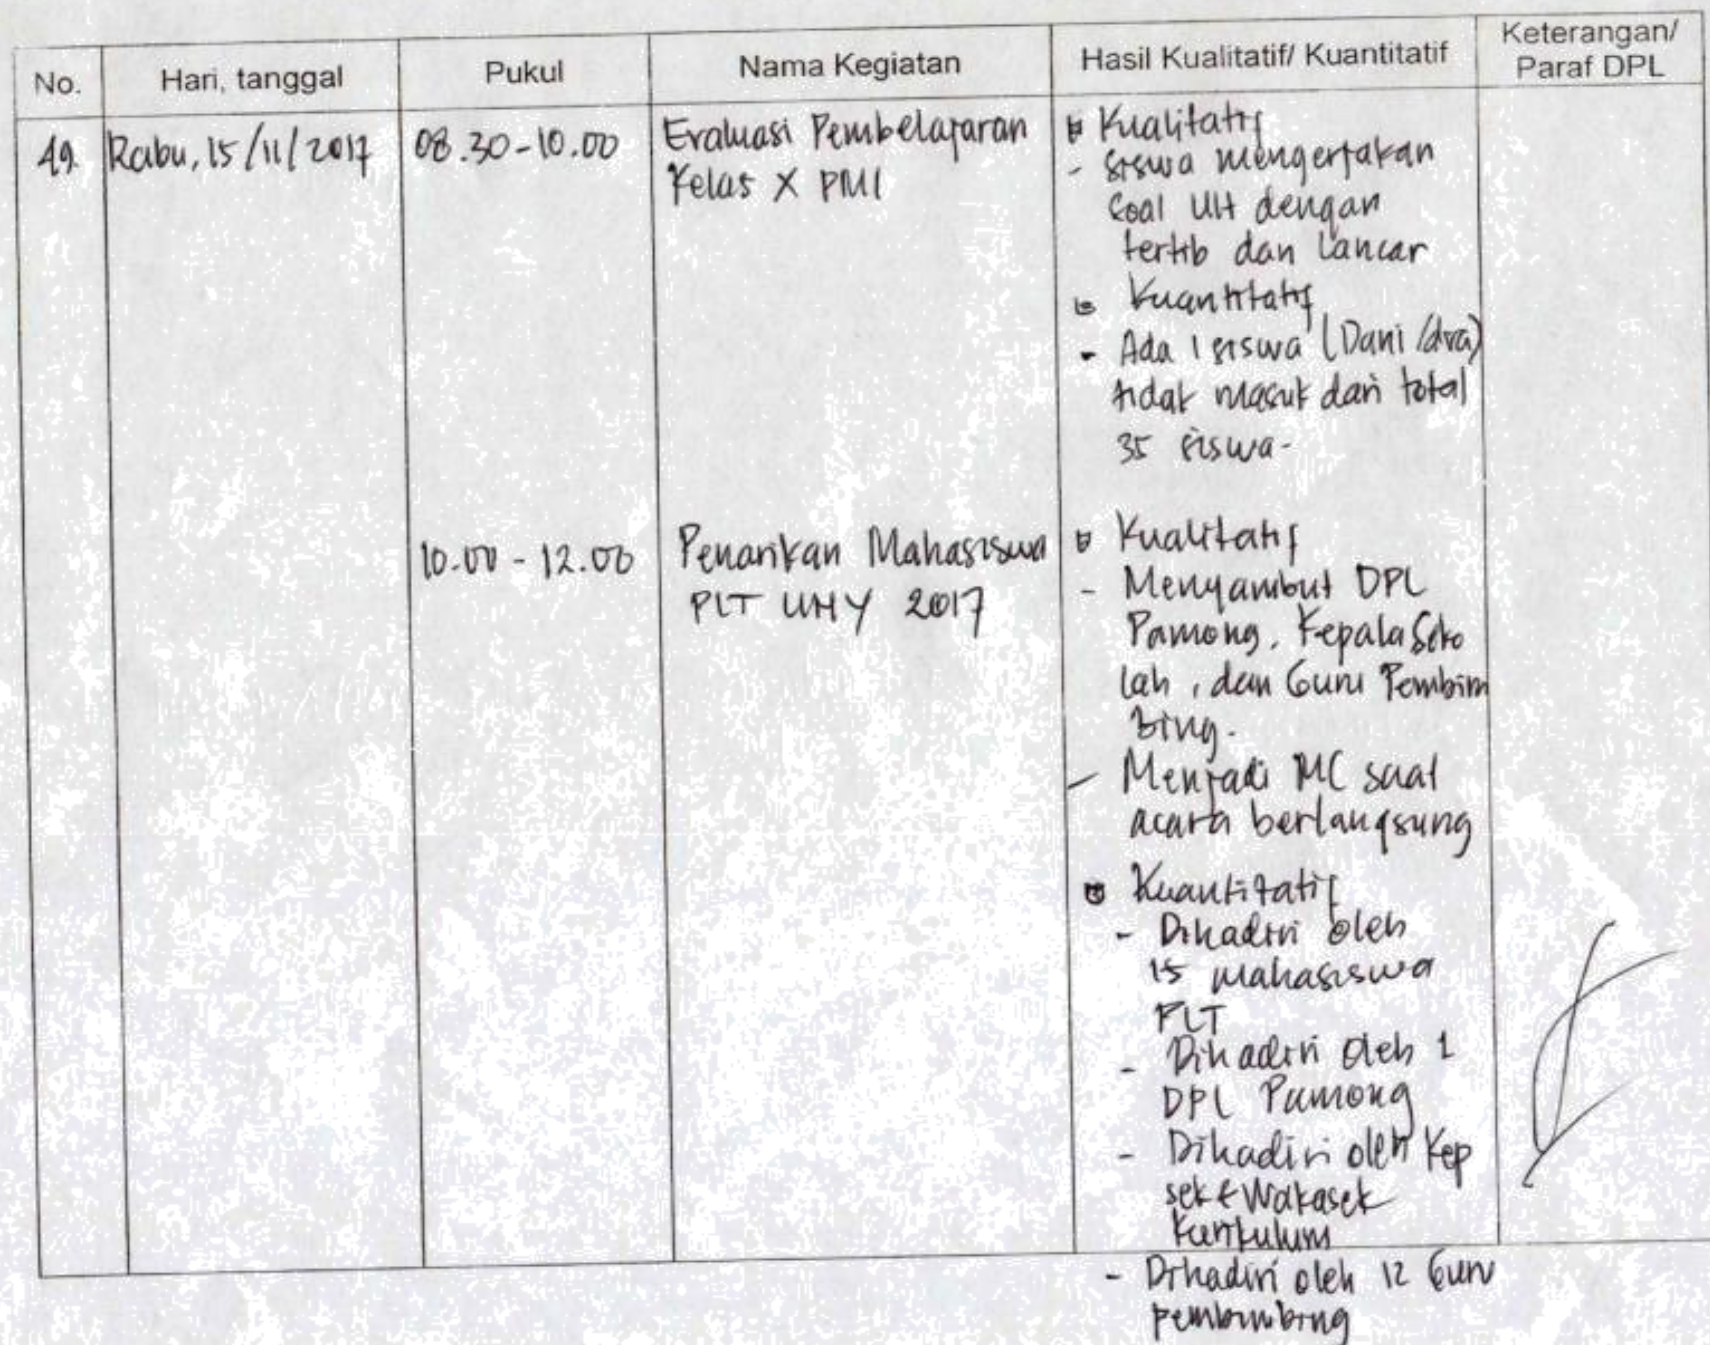 No. Hari, tanggal Pukul Nama Kegiatan Hasil Kualitatif/ Kuantitatif Keterangan/
Paraf DPL
49. Rabu, 15/11/2017 08.30-10.00 Evaluasi Pembelajaran
Kelas X PM1
Kualitatif
- siswa mengerjakan
soal UH dengan
tertib dan lancar
Kuantitatif
- Ada 1 siswa (Dani
tidak masuk dari total
35 siswa-
10.00 - 12.00 Penarikan Mahasiswa
PLT UNY 2017
Kualitatif
- Menyambut DPL
Pamong, Kepala Seko
lah, dan Guru Pembim
bing.
- Menjadi MC saat
acara berlangsung
Kuantitatif
- Dihadiri oleh
15 mahasiswa
PLT
- Dihadiri oleh 1
DPL Pamong
- Dihadiri oleh Kep
sek & Wakasek
Kurikulum
- Dihadiri oleh 12 Guru
pembimbing